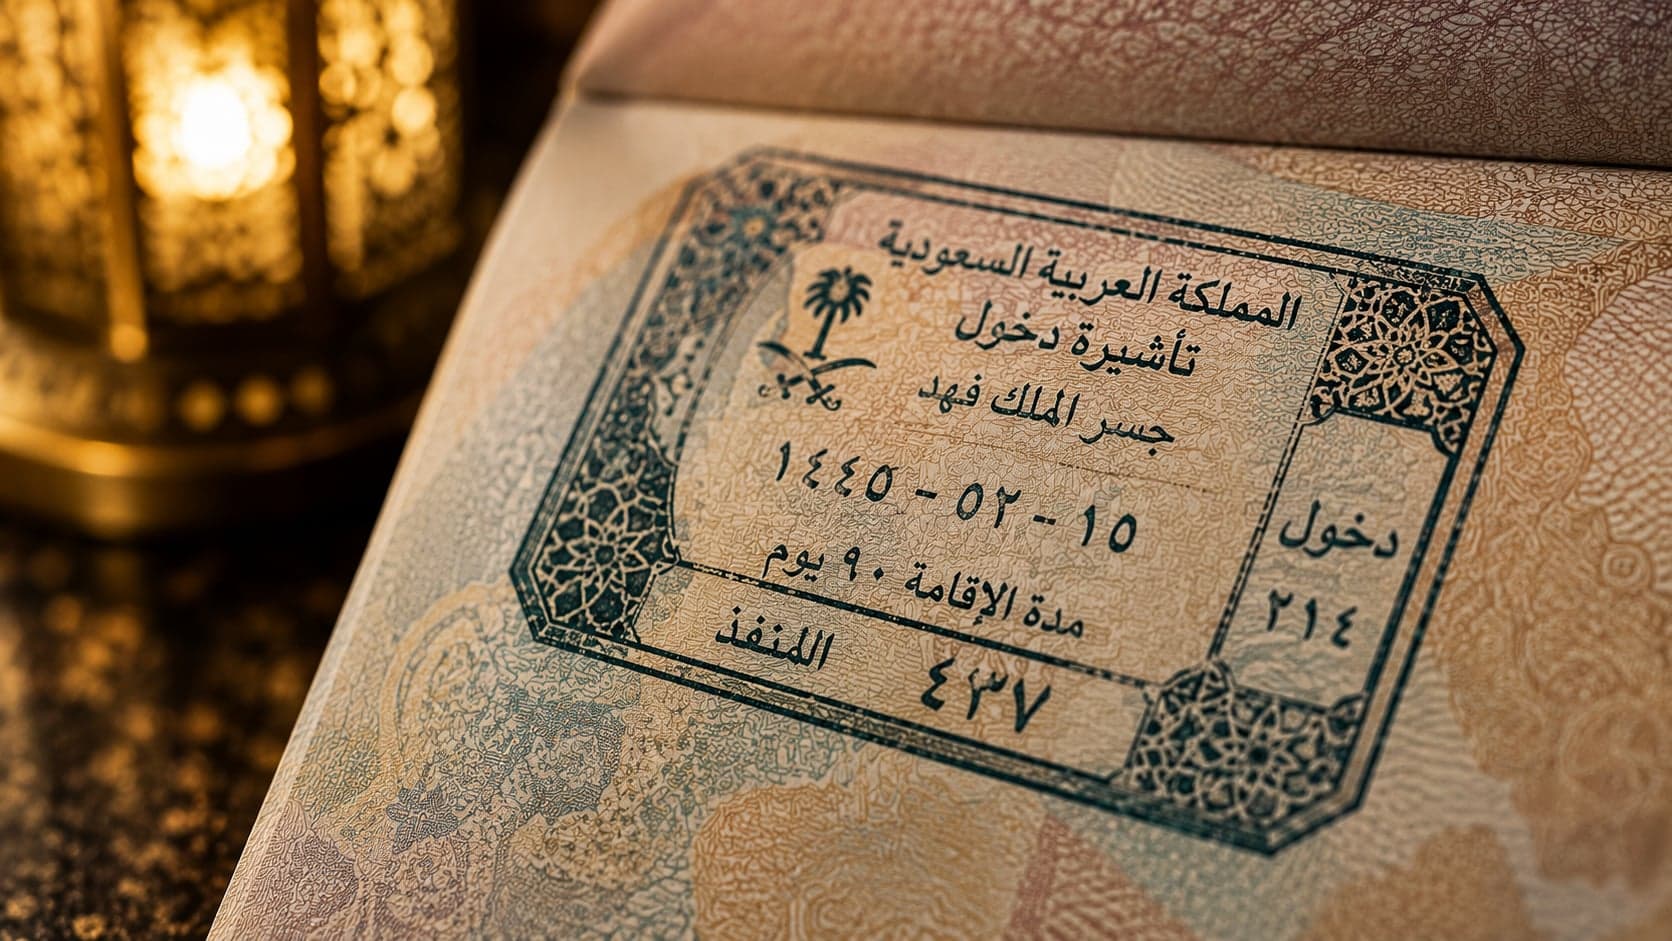 المملكة العربية السعودية
تأشيرة دخول
جسر الملك فهد
١٥ - ٥٢ - ١٤٤٥
مدة الإقامة ٩٠ يوم
دخول
٢١٤
٤٣٧ المنفذ